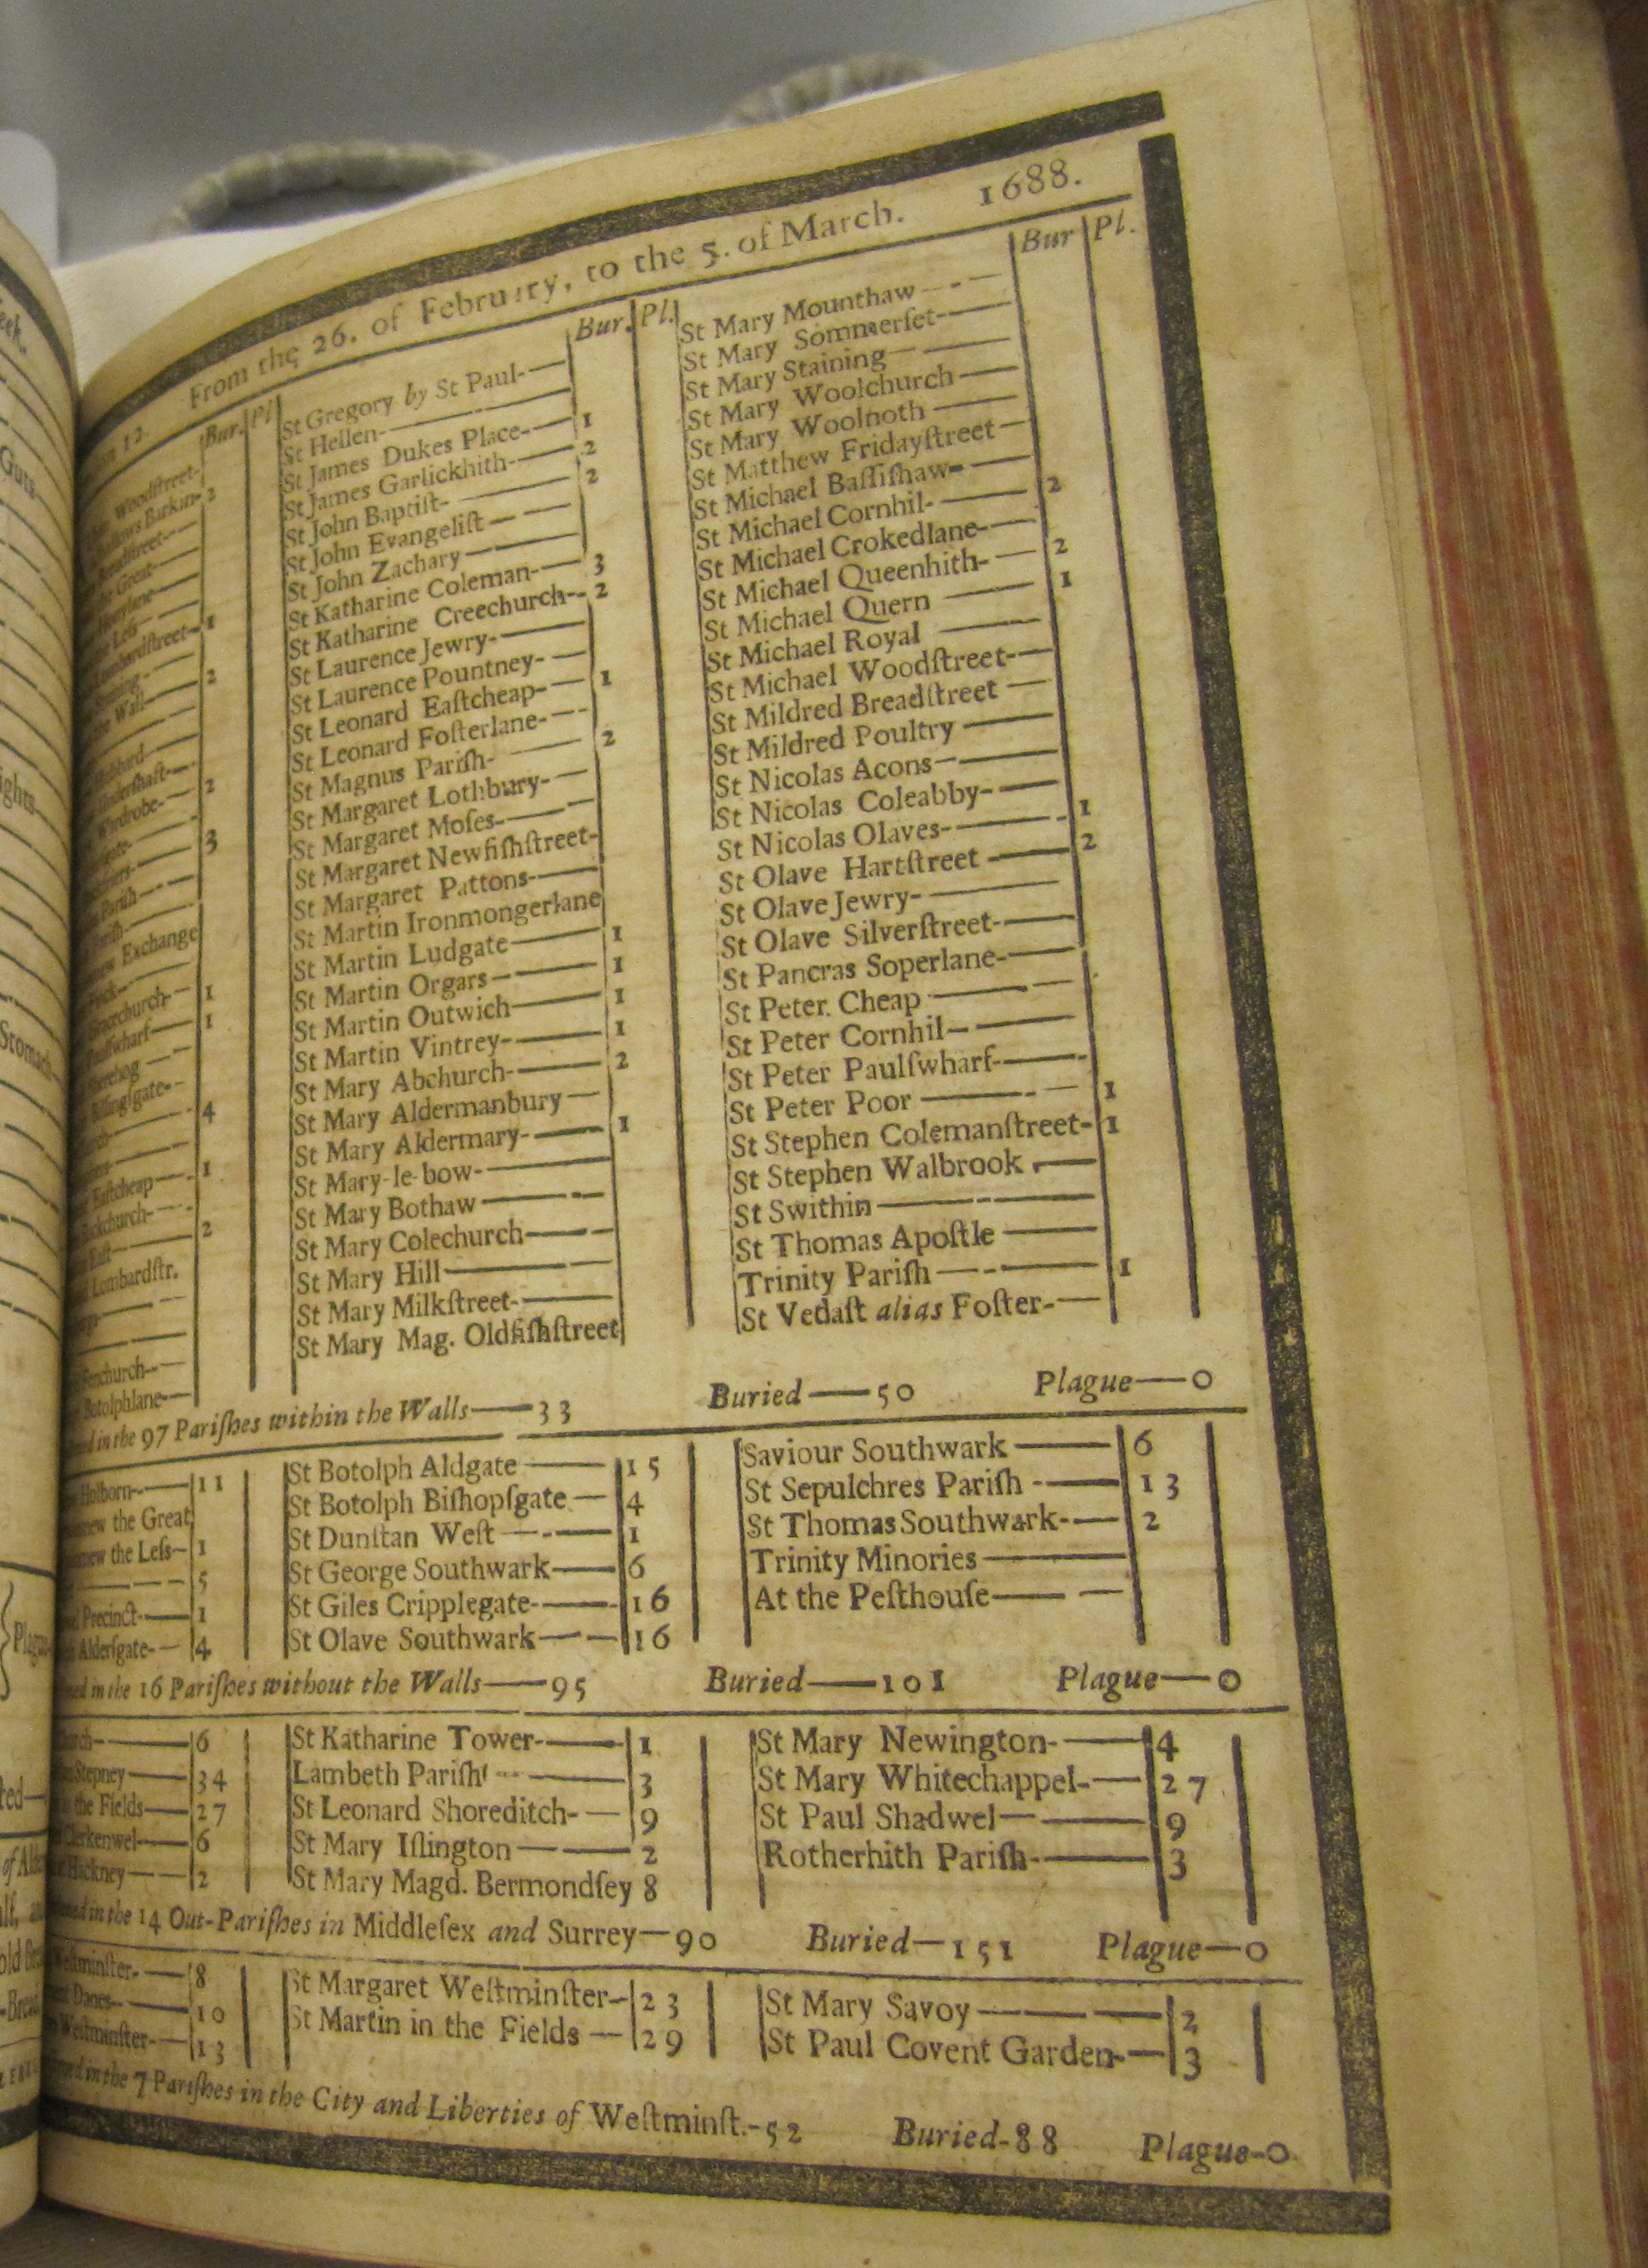 From the 26. of February, to the 5. of March. 1688.
Bur. Pl
Woodſtreet-
Barkin- 2
Great-
Leſs-
1
Wall- 2
Wardrobe- 2
3
Pariſh-
Exchange
1
wharf- 1
4
Eaſtcheap- 1
2
Lombardſtr.
Fenchurch-
Botolphlane-
Bur. Pl.
St Gregory by St Paul-
St Hellen-
St James Dukes Place- 1
St James Garlickhith- 2
St John Baptiſt- 2
St John Evangeliſt
St John Zachary
St Katharine Coleman- 3
St Katharine Creechurch- 2
St Laurence Jewry-
St Laurence Pountney-
St Leonard Eaſtcheap- 1
St Leonard Foſterlane-
St Magnus Pariſh- 2
St Margaret Lothbury-
St Margaret Moſes-
St Margaret Newfiſhſtreet-
St Margaret Pattons-
St Martin Ironmongerlane
St Martin Ludgate 1
St Martin Orgars 1
St Martin Outwich 1
St Martin Vintrey- 1
St Mary Abchurch- 2
St Mary Aldermanbury
St Mary Aldermary- 1
St Mary-le-bow-
St Mary Bothaw
St Mary Colechurch
St Mary Hill
St Mary Milkſtreet-
St Mary Mag. Oldfiſhſtreet
Bur Pl.
St Mary Mounthaw
St Mary Sommerſet-
St Mary Staining
St Mary Woolchurch
St Mary Woolnoth
St Matthew Fridayſtreet
St Michael Baſſiſhaw-
St Michael Cornhil- 2
St Michael Crokedlane-
St Michael Queenhith- 2
St Michael Quern 1
St Michael Royal
St Michael Woodſtreet-
St Mildred Breadſtreet
St Mildred Poultry
St Nicolas Acons
St Nicolas Coleabby-
St Nicolas Olaves- 1
St Olave Hartſtreet 2
St Olave Jewry-
St Olave Silverſtreet-
St Pancras Soperlane-
St Peter Cheap
St Peter Cornhil
St Peter Paulſwharf-
St Peter Poor 1
St Stephen Colemanſtreet- 1
St Stephen Walbrook
St Swithin
St Thomas Apoſtle
Trinity Pariſh 1
St Vedaſt alias Foſter-
in the 97 Pariſhes within the Walls—33 Buried—50 Plague—0
Holborn- 11
the Great
the Leſs 1
5
Precinct- 1
Alderſgate- 4
St Botolph Aldgate 15
St Botolph Biſhopſgate 4
St Dunſtan Weſt 1
St George Southwark 6
St Giles Cripplegate- 16
St Olave Southwark 16
Saviour Southwark 6
St Sepulchres Pariſh 13
St Thomas Southwark- 2
Trinity Minories
At the Peſthouſe
in the 16 Pariſhes without the Walls—95 Buried—101 Plague—0
6
Stepney 34
the Fields 27
Clerkenwel 6
Hackney 2
St Katharine Tower- 1
Lambeth Pariſh 3
St Leonard Shoreditch- 9
St Mary Iſlington 2
St Mary Magd. Bermondſey 8
St Mary Newington- 4
St Mary Whitechappel- 27
St Paul Shadwel 9
Rotherhith Pariſh- 3
in the 14 Out-Pariſhes in Middleſex and Surrey—90 Buried—151 Plague—0
Weſtminſter- 8
Danes- 10
Weſtminſter- 13
St Margaret Weſtminſter 23
St Martin in the Fields 29
St Mary Savoy 2
St Paul Covent Garden- 3
in the 7 Pariſhes in the City and Liberties of Weſtminſt.-52 Buried-88 Plague-0